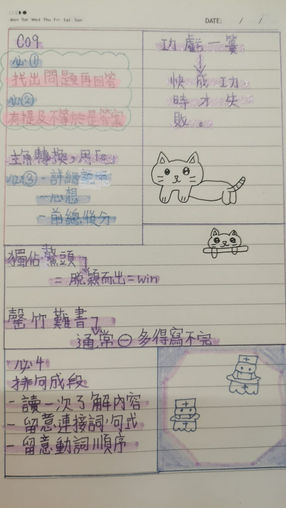 Mon Tue Wed Thu Fri Sat Sun
DATE: / /
C09
必①
找出問題再回答
必②
有提及不等於是答案
主角轉換,用「」
必③ - 詳細
- 心想
- 前總後分
功虧一簣
快成功
時才失
敗。
獨佔鰲頭
= 脫穎而出 = win
罄竹難書
通常 ⊖ 多得寫不完
必4
排句成段
- 讀一次了解內容
- 留意連接詞、句式
- 留意動詞順序